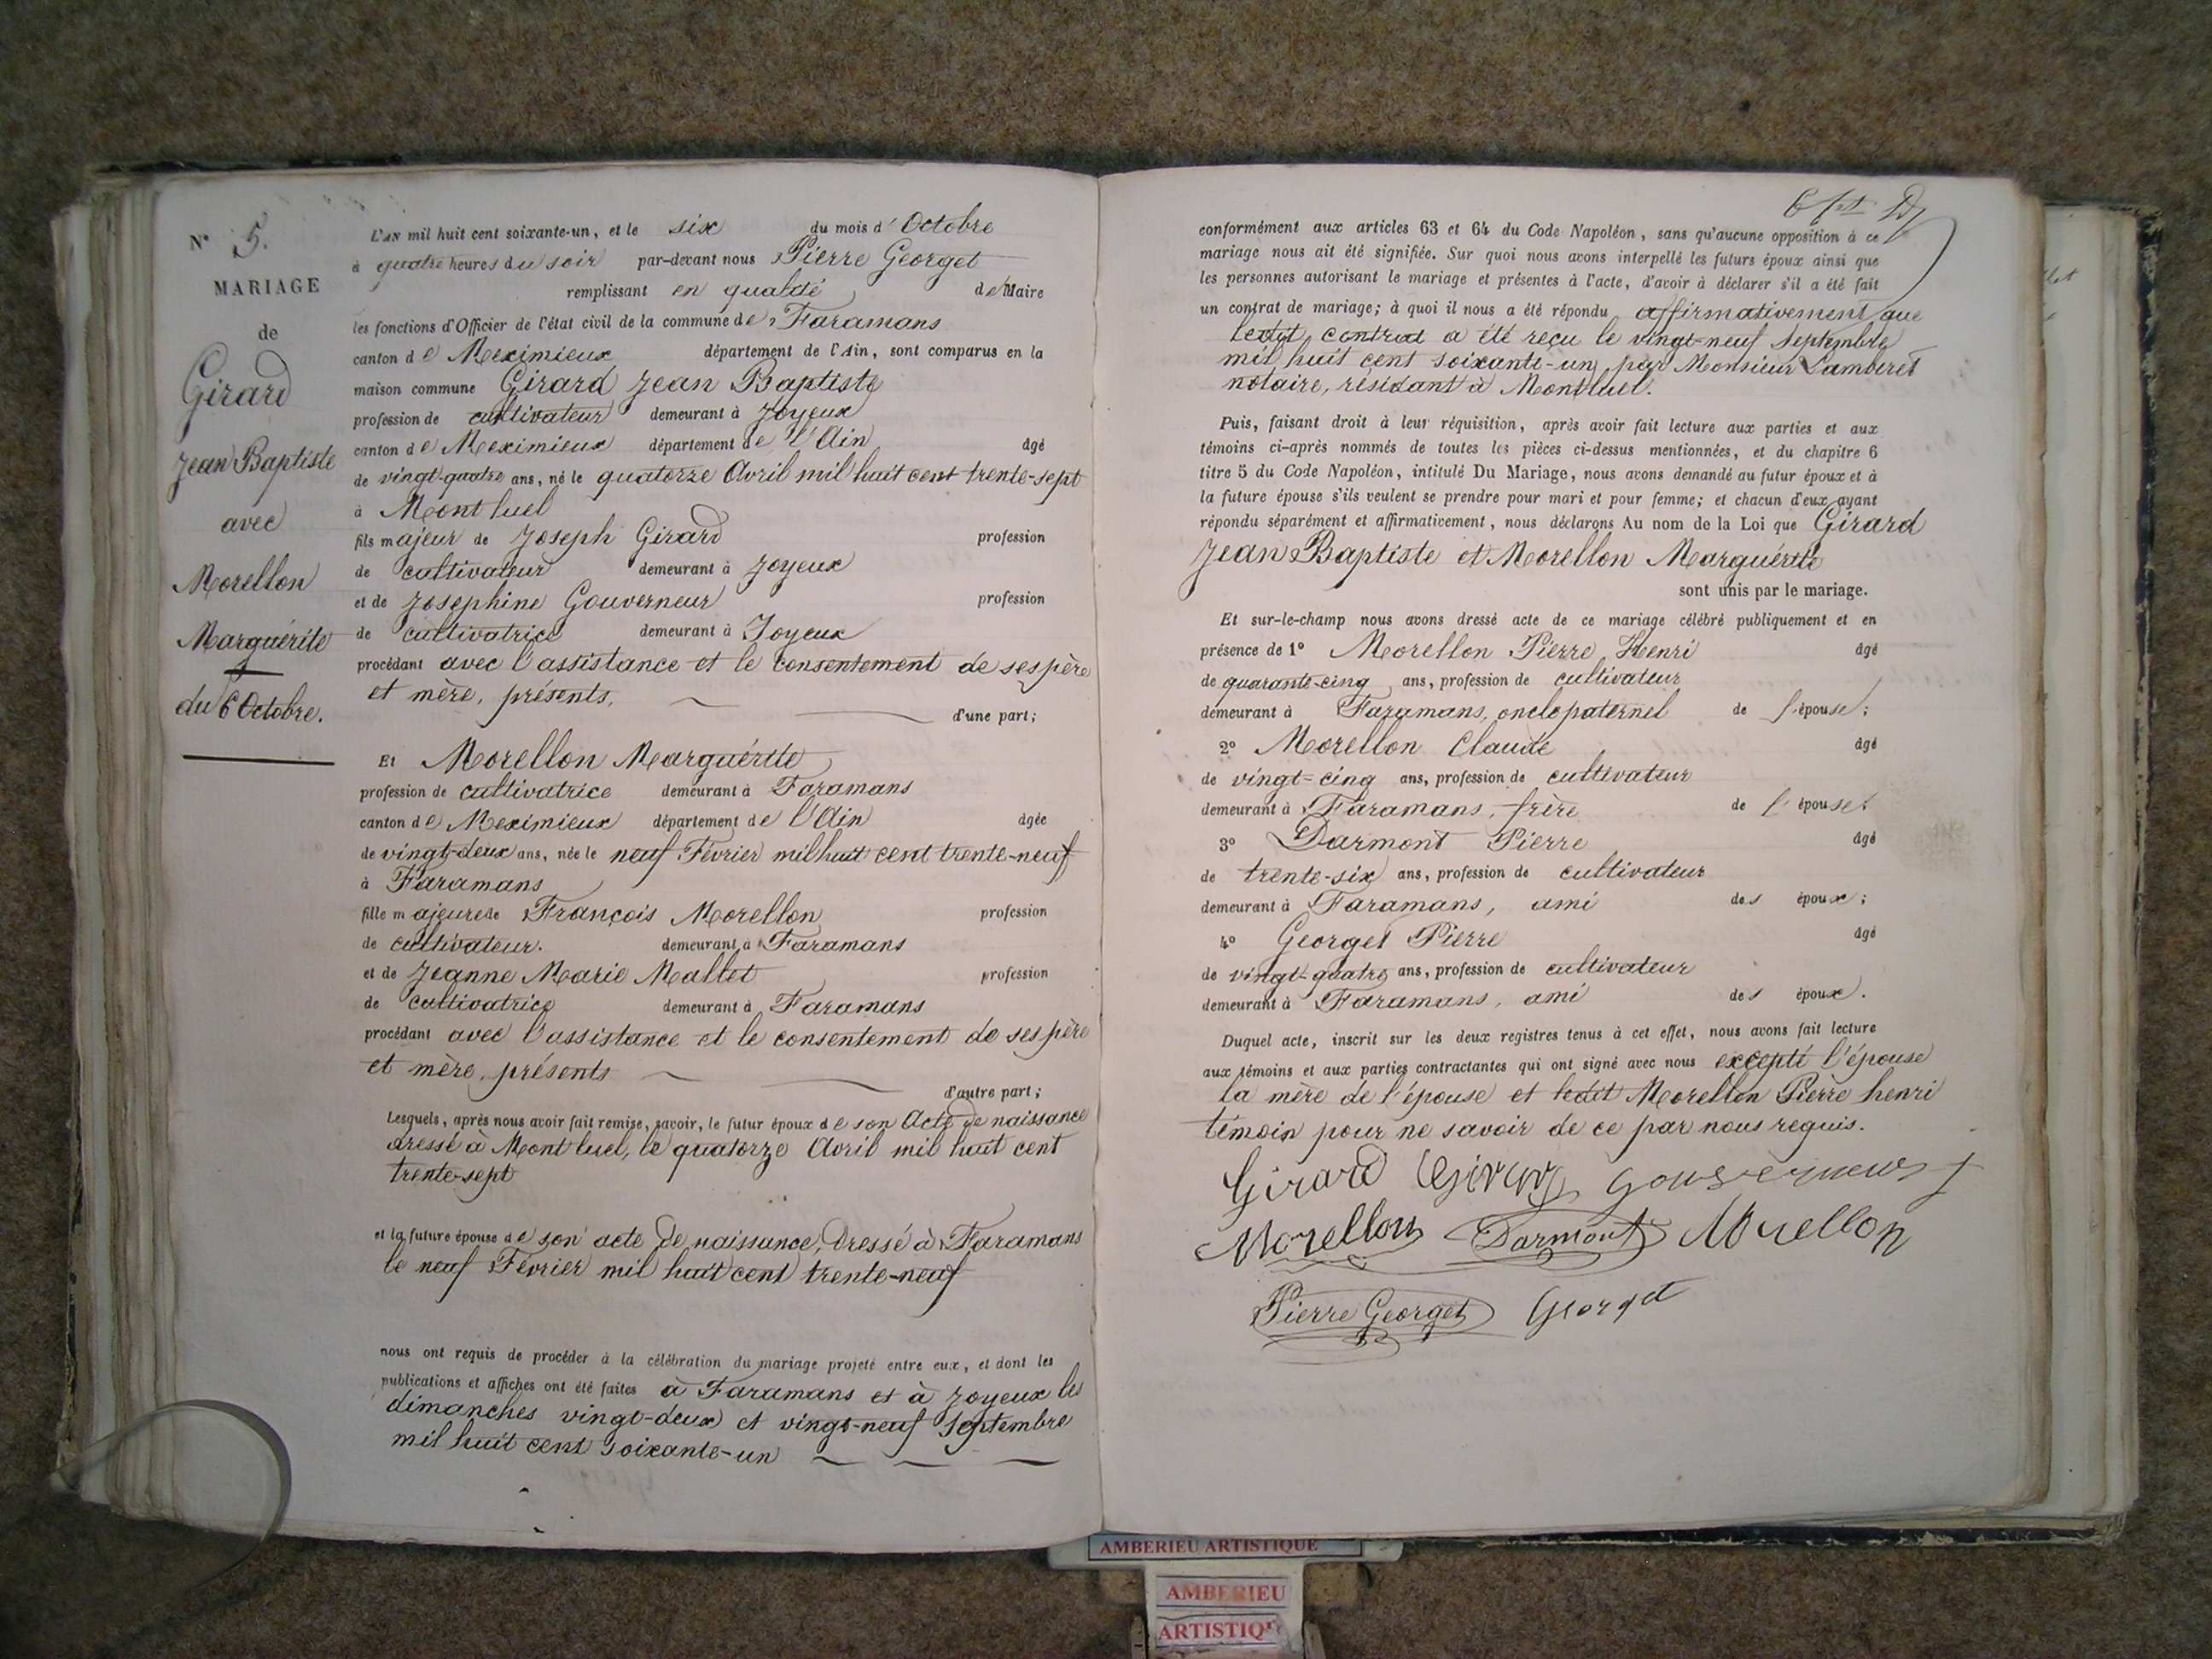 N° 5.
MARIAGE
de
Girard
Jean Baptiste
avec
Morellon
Marguérite
du 6 Octobre.
L'AN mil huit cent soixante-un, et le six du mois d'Octobre
à quatre heures du soir par-devant nous Pierre Georget
remplissant en qualité de Maire
les fonctions d'Officier de l'état civil de la commune de Faramans
canton de Meximieux département de l'Ain, sont comparus en la
maison commune Girard Jean Baptiste
profession de cultivateur demeurant à Joyeux
canton de Meximieux département de l'Ain âgé
de vingt-quatre ans, né le quatorze Avril mil huit cent trente-sept
à Montluel
fils majeur de Joseph Girard profession
de cultivateur demeurant à Joyeux
et de Josephine Gouverneur profession
de cultivatrice demeurant à Joyeux
procédant avec l'assistance et le consentement de ses père
et mère, présents,
d'une part;
Et Morellon Marguérite
profession de cultivatrice demeurant à Faramans
canton de Meximieux département de l'Ain âgée
de vingt-deux ans, née le neuf Février mil huit cent trente-neuf
à Faramans
fille majeure de François Morellon profession
de cultivateur. demeurant à Faramans
et de Jeanne Marie Mallet profession
de cultivatrice demeurant à Faramans
procédant avec l'assistance et le consentement de ses père
et mère, présents
d'autre part;
Lesquels, après nous avoir fait remise, savoir, le futur époux de son Acte de naissance
dressé à Montluel, le quatorze Avril mil huit cent
trente-sept
et la future épouse de son acte de naissance, dressé à Faramans
le neuf Février mil huit cent trente-neuf
nous ont requis de procéder à la célébration du mariage projeté entre eux, et dont les
publications et affiches ont été faites à Faramans et à Joyeux les
dimanches vingt-deux et vingt-neuf Septembre
mil huit cent soixante-un
conformément aux articles 63 et 64 du Code Napoléon, sans qu'aucune opposition à ce
mariage nous ait été signifiée. Sur quoi nous avons interpellé les futurs époux ainsi que
les personnes autorisant le mariage et présentes à l'acte, d'avoir à déclarer s'il a été fait
un contrat de mariage; à quoi il nous a été répondu affirmativement que
ledit contrat a été reçu le vingt-neuf Septembre
mil huit cent soixante-un, par Monsieur Lamberet
notaire, résidant à Montluel.
Puis, faisant droit à leur réquisition, après avoir fait lecture aux parties et aux
témoins ci-après nommés de toutes les pièces ci-dessus mentionnées, et du chapitre 6
titre 5 du Code Napoléon, intitulé Du Mariage, nous avons demandé au futur époux et à
la future épouse s'ils veulent se prendre pour mari et pour femme; et chacun d'eux ayant
répondu séparément et affirmativement, nous déclarons Au nom de la Loi que Girard
Jean Baptiste et Morellon Marguérite
sont unis par le mariage.
Et sur-le-champ nous avons dressé acte de ce mariage célébré publiquement et en
présence de 1° Morellon Pierre Henri âgé
de quarante-cinq ans, profession de cultivateur
demeurant à Faramans, oncle paternel de l'épouse;
2° Morellon Claude âgé
de vingt-cinq ans, profession de cultivateur
demeurant à Faramans, frère de l'épouse.
3° Darmont Pierre âgé
de trente-six ans, profession de cultivateur
demeurant à Faramans, ami des époux;
4° Georget Pierre âgé
de vingt-quatre ans, profession de cultivateur
demeurant à Faramans, ami des époux.
Duquel acte, inscrit sur les deux registres tenus à cet effet, nous avons fait lecture
aux témoins et aux parties contractantes qui ont signé avec nous excepté l'épouse
la mère de l'épouse et ledit Morellon Pierre henri
témoin pour ne savoir de ce par nous requis.
Girard Gouverneur
Morellon Darmont Morellon
Pierre Georget Georget
AMBERIEU ARTISTIQUE
AMBERIEU
ARTISTIQ